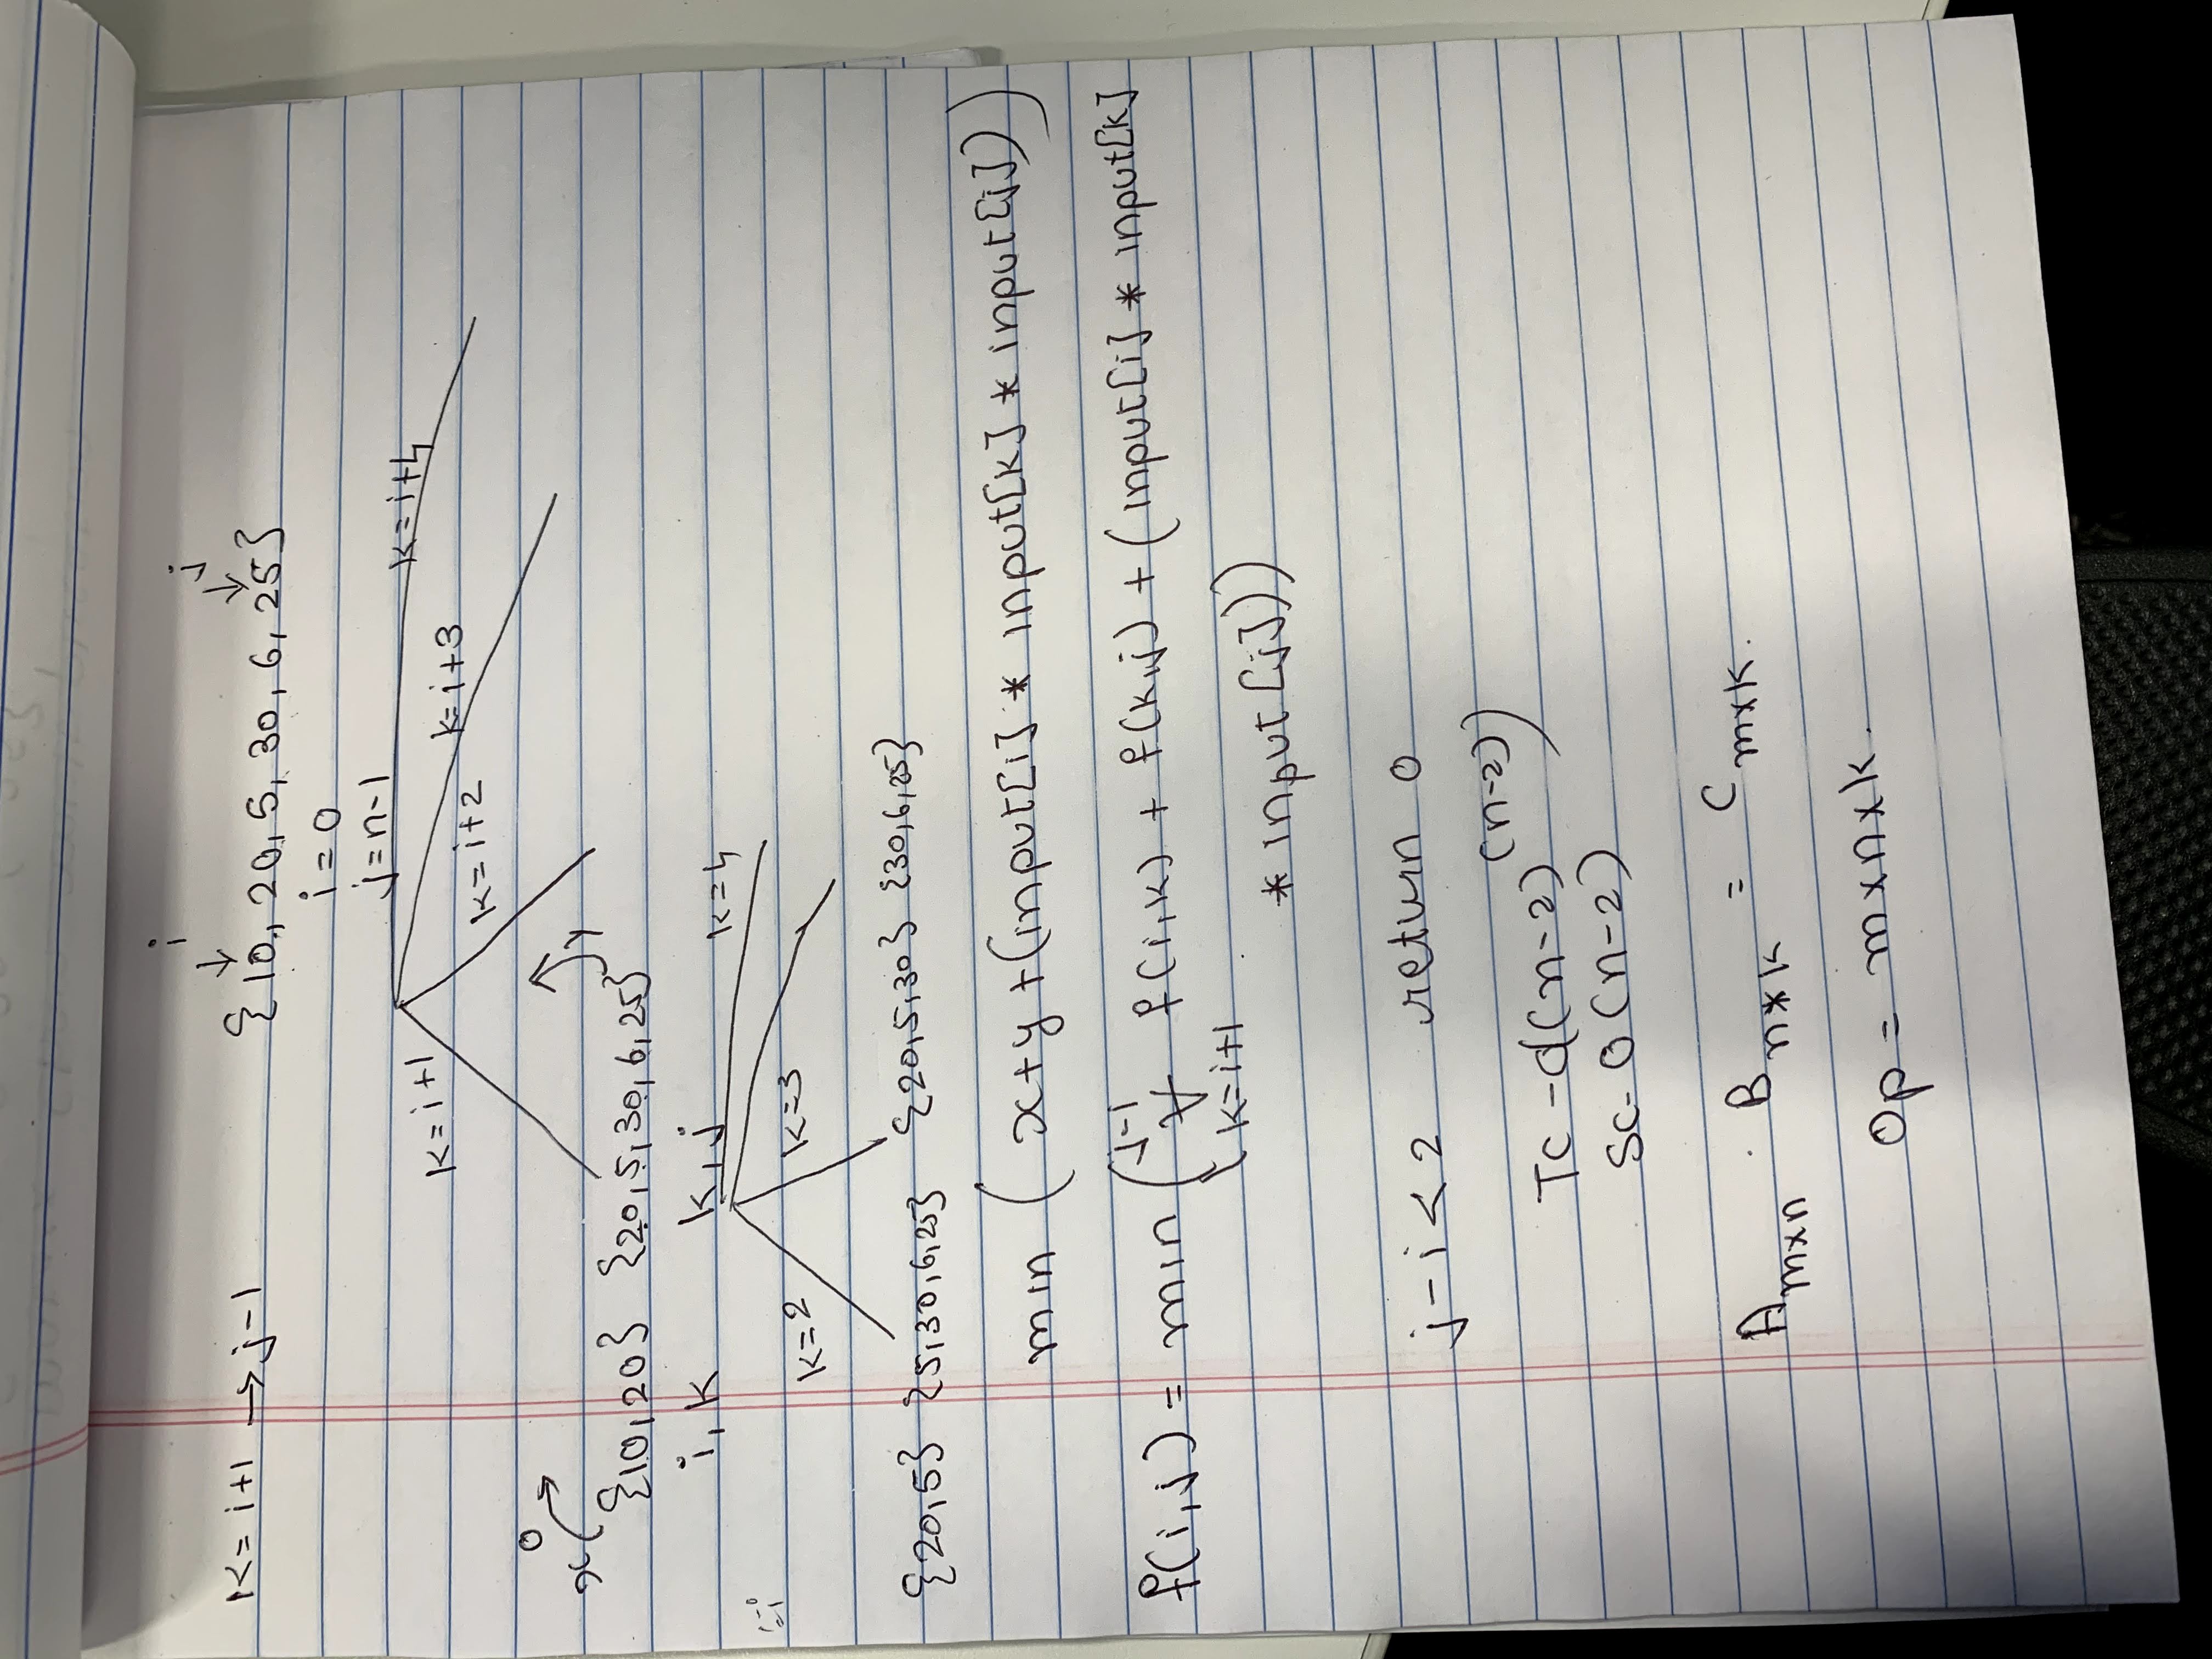 i
j
K = i+1 → j-1
{10, 20, 5, 30, 6, 25}
i = 0
j = n-1
K = i+1
K = i+2
k = i+3
K = i+4
0
x
y
{10, 20} {20, 5, 30, 6, 25}
i, k
k, j
K = 4
K = 2
K = 3
{20, 5} {5, 30, 6, 25} {20, 5, 30} {30, 6, 25}
min ( x + y + (input[i] * input[k] * input[j]))
f(i, j) = min ( j-1 ∀ k=i+1 f(i, k) + f(k, j) + (input[i] * input[k]
* input[j]))
j - i < 2 return 0
TC - O((n-2)^(n-2))
SC - O(n-2)
A m×n . B n*k = C m×k.
Op = m×n×k.